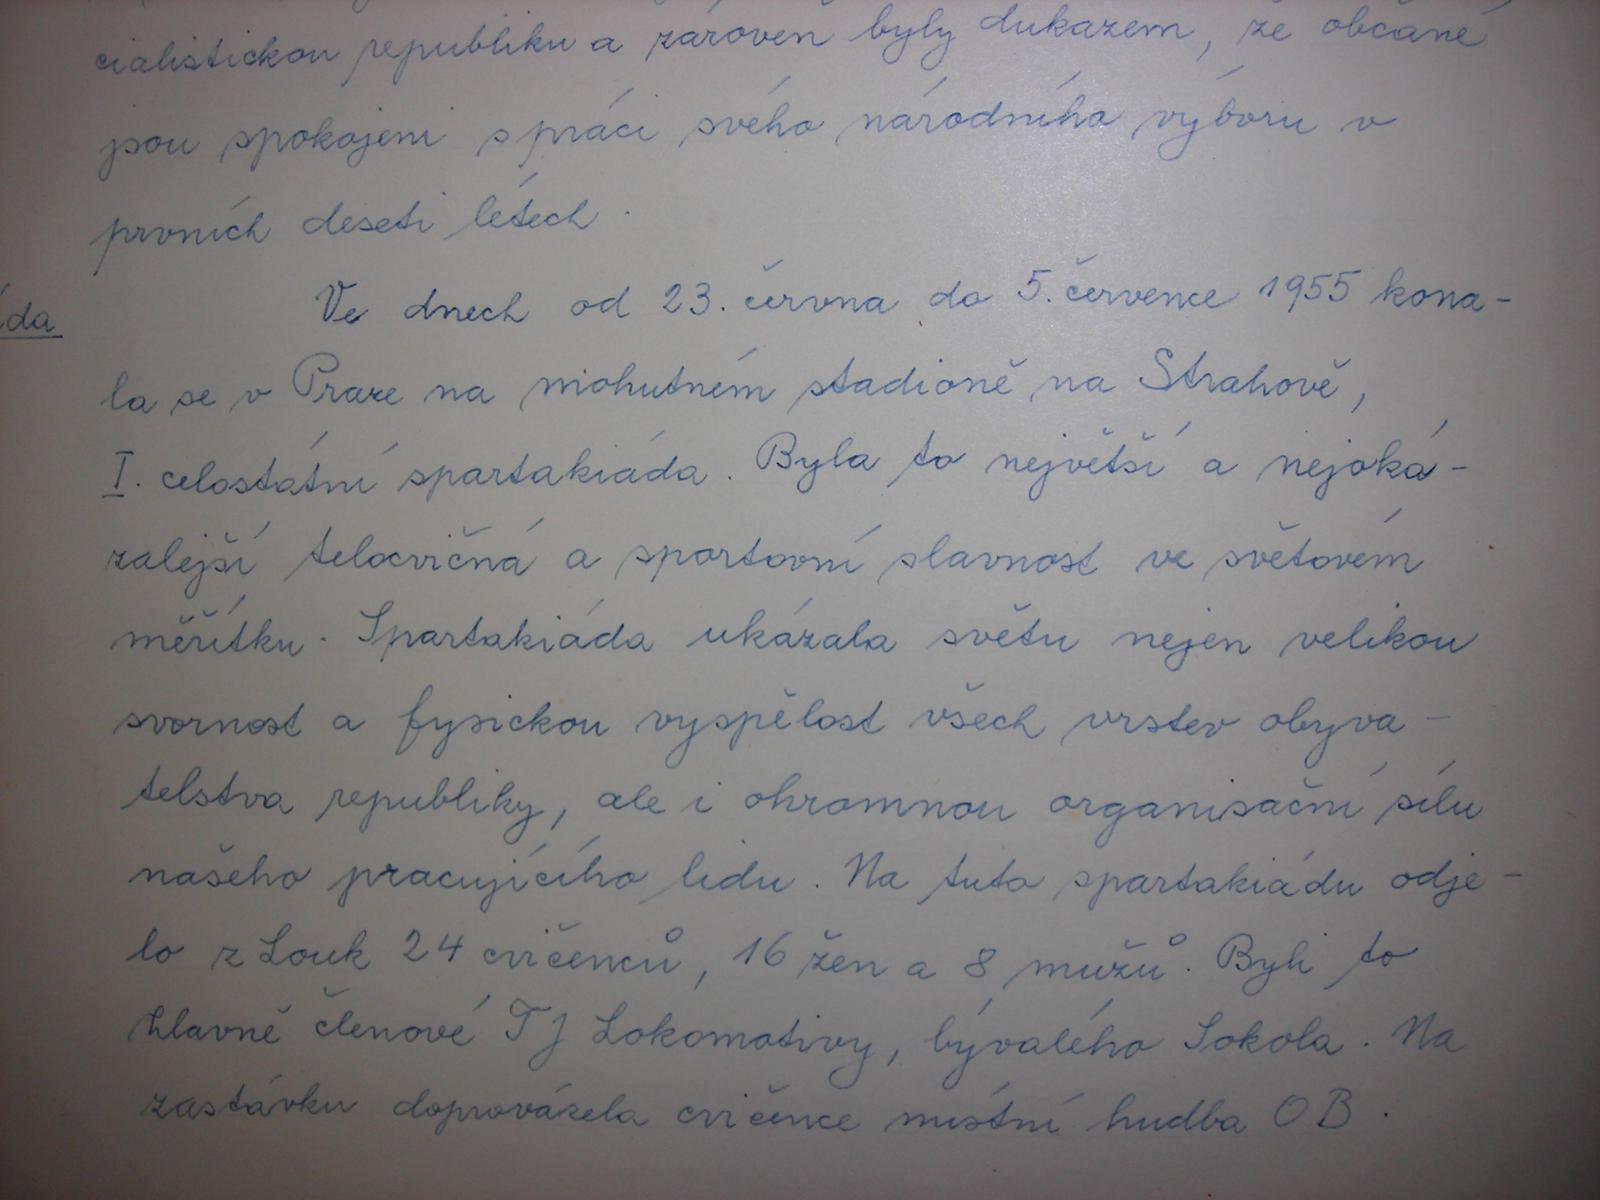 cialistickou republiku a zároveň byly dukazem, že občané
jsou spokojeni s práci svého národního výboru v
prvních deseti létech.
Ve dnech od 23. června do 5. července 1955 kona-
da
la se v Praze na mohutném stadioně na Strahově,
I. celostátní spartakiáda. Byla to největší a nejoká-
zalejší telocvičná a sportovní slavnost ve světovém
měřítku. Spartakiáda ukázala světu nejen velikou
svornost a fysickou vyspělost všech vrstev obyva-
telstva republiky, ale i ohromnou organisační sílu
našeho pracujícího lidu. Na tuto spartakiádu odje-
lo z Louk 24 cvičenců, 16 žen a 8 mužů. Byli to
hlavně členové TJ Lokomotivy, bývalého Sokola. Na
zastávku doprovázela cvičence místní hudba OB.